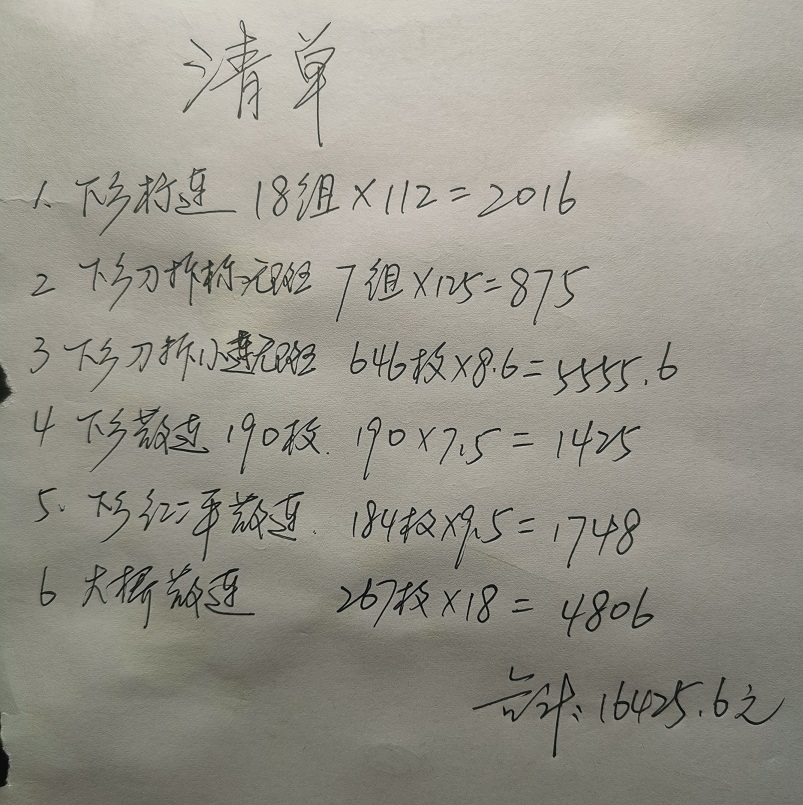 清单
1. 下乡标连 18组×112=2016
2 下乡刀拆标无斑 7组×125=875
3 下乡刀拆小连无斑 646枚×8.6=5555.6
4 下乡散连 190枚. 190×7.5=1425
5. 下乡红二平散连. 184枚×9.5=1748
6 大桥散连 267枚×18=4806
合计: 16425.6元